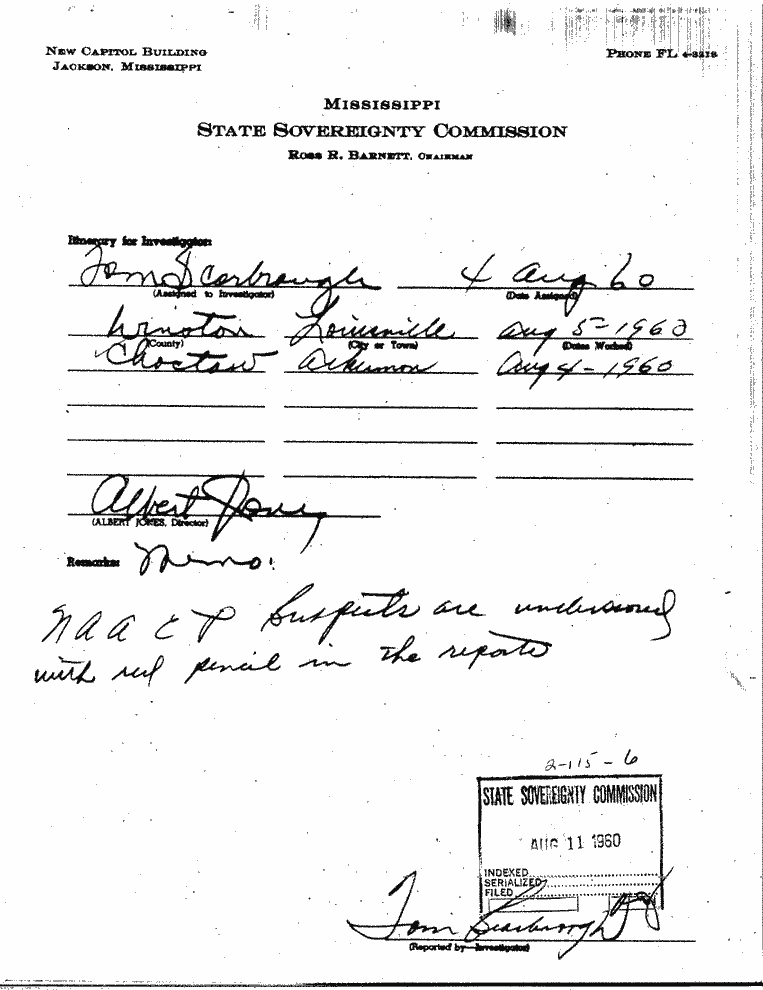 NEW CAPITOL BUILDING
JACKSON, MISSISSIPPI
PHONE FL 4-3218
MISSISSIPPI
STATE SOVEREIGNTY COMMISSION
ROSS R. BARNETT, CHAIRMAN
Itinerary for Investigator:
Tom Scarbrough 4 Aug 60
(Assigned to Investigator) (Date Assigned)
Winston Louisville Aug 5-1960
(County) (City or Town) (Dates Worked)
Choctaw Ackerman Aug 4-1960
Albert Jones
(ALBERT JONES, Director)
Remarks: Memo:
NAACP Suspects are underscored
with red pencil in the reports
2-115-6
STATE SOVEREIGNTY COMMISSION
AUG 11 1960
INDEXED
SERIALIZED
FILED
Tom Scarbrough
(Reported by Investigator)